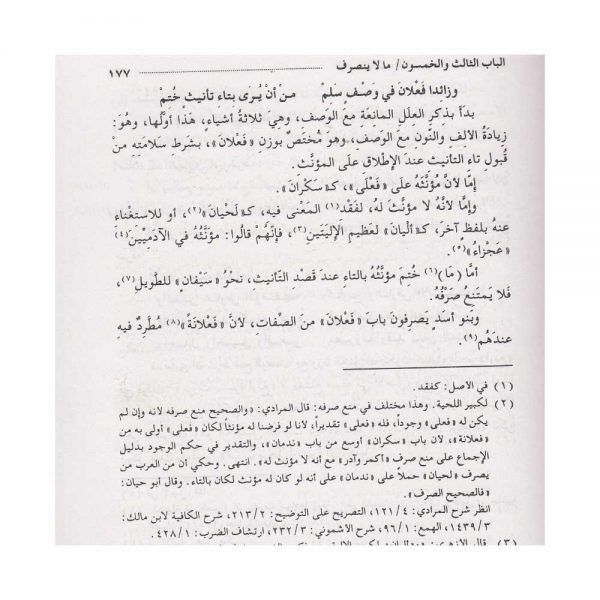 الباب الثالث والخمسون / ما لا ينصرف ........ ١٧٧
وزائدا فَعْلانَ في وَصْفٍ سَلِمْ مِنْ أنْ يُرَى بتاء تأنيث خُتِمْ
بدأ بذكر العِلَلِ المانِعَةِ مَعَ الوَصف، وهي ثلاثةُ أشياء، هَذَا أوّلُها، وهُوَ:
زِيادَةُ الألِفِ والنُّونِ مَعَ الوَصْفِ، وهوَ مُخْتَصٌّ بوَزنِ «فَعْلان»، بشَرطِ سَلامَتِهِ مِنْ
قُبولِ تاء التأنيث عندَ الإطلاق علَى المؤنَّث.
إمَّا لأنَّ مُؤنَّثَهُ علَى «فَعْلَى»، كـ«سَكْرانَ».
وإمَّا لأنَّهُ لا مؤنَّثَ لهُ، لفَقْدِ(١) المَعْنى فيه، كـ«لَحْيانَ»(٢)، أو للاستغناء
عنهُ بلَفظٍ آخرَ، كـ«أليانَ» لعَظيمِ الإليَتَينِ(٣)، فإنَّهُمْ قالُوا: مؤنَّثُهُ في الآدَمِيِّينَ(٤)
«عَجْزاءُ»(٥).
أمَّا (مَا)(٦) خُتِمَ مؤنَّثُهُ بالتاءِ عندَ قَصْدِ التّأنيث، نحوُ «سَيْفان» للطّويلِ(٧)،
فَلا يَمتَنِعُ صَرْفُهُ.
وبَنو أسَدٍ يَصرِفونَ بابَ «فَعْلانَ» منَ الصِّفاتِ، لأنَّ «فَعْلانَةً»(٨) مُطَّرِدٌ فيهِ
عندَهُم(٩).
(١) في الأصل: كفقد.
(٢) لكبير اللحية. وهذا مختلف في منع صرفه: قال المرادي: «والصحيح منع صرفه لأنه وإن لم
يكن له «فعلى» وجوداً، فله «فعلى» تقديراً، لأنا لو فرضنا له مؤنثاً لكان «فعلى» أولى به من
«فعلانة»، لأن باب «سكران» أوسع من باب «ندمان»، والتقدير في حكم الوجود بدليل
الإجماع على منع صرف «أكمر وآدر» مع أنه لا مؤنث له». انتهى. وحكي أن من العرب من
يصرف «لحيان» حملاً على «ندمان» على أنه لو كان له مؤنث لكان بالتاء. وقال أبو حيان:
«فالصحيح الصرف».
انظر شرح المرادي: ٤/١٢١، التصريح على التوضيح: ٢/٢١٣، شرح الكافية لابن مالك:
٣/١٤٣٩، الهمع: ١/٩٦، شرح الأشموني: ٣/٢٣٢، ارتشاف الضرب: ١/٤٢٨.
(٣) قال الأزهري: